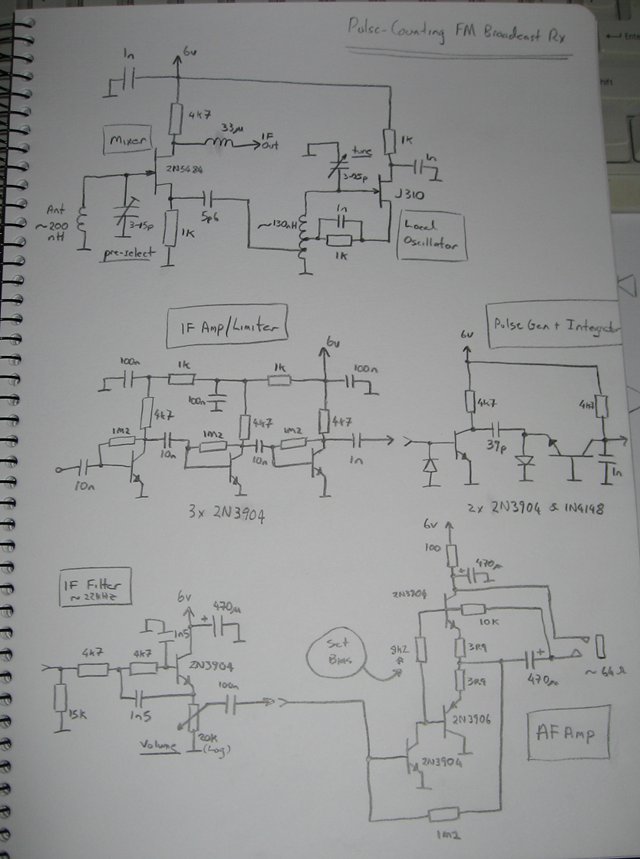 Pulse-Counting FM Broadcast Rx
1n
6v
4k7
33µ
IF
Out
Mixer
2N5484
tune
3-25p
1k
1n
J310
Ant
~200
nH
pre-select
1K
5p6
~130nH
1n
1K
Local
Oscillator
IF Amp/Limiter
6v
Pulse Gen + Integrator
6v
100n
1k
1k
100n
100n
4k7
4k7
4k7
1m2
1m2
1m2
10n
10n
10n
1n
3x 2N3904
4k7
4k7
39p
1n
2x 2N3904 & 1N4148
IF Filter
~22kHz
6v
470µ
1n5
4k7
4k7
2N3904
15k
1n5
100n
20K
(Log)
Volume
6v
100
470µ
2N3904
10K
Set
Bias
3R9
3R9
470µ
~64Ω
2N3906
2N3904
AF Amp
1m2